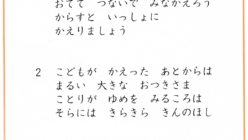 おてて つないで みなかえろう
からすと いっしょに
かえりましょう
2 こどもが かえった あとからは
まるい 大きな おつきさま
ことりが ゆめを みるころは
そらには きらきら きんのほし